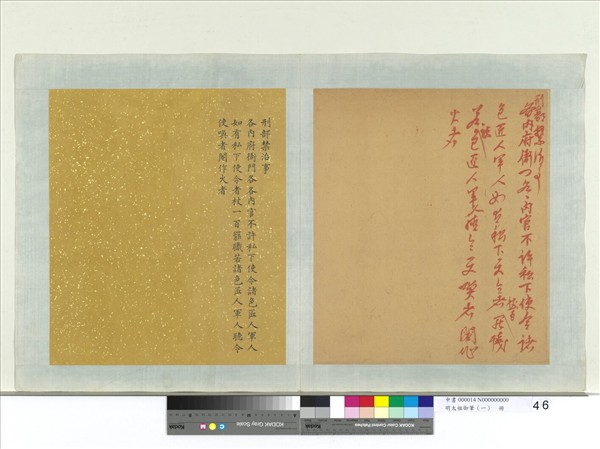 刑部禁治事
內府衙門各各內官不許私下使令諸
色匠人軍人如有私下使令者杖一百罷職
若諸色匠人軍人聽令使喚者閹作
火者
刑部禁治事
各內府衙門各各內官不許私下使令諸色匠人軍人
如有私下使令者杖一百罷職若諸色匠人軍人聽令
使喚者閹作火者
KODAK Gray Scale
C Y M
Kodak
KODAK Color Control Patches
中書 000014 N000000000
明太祖御筆（一） 冊
46